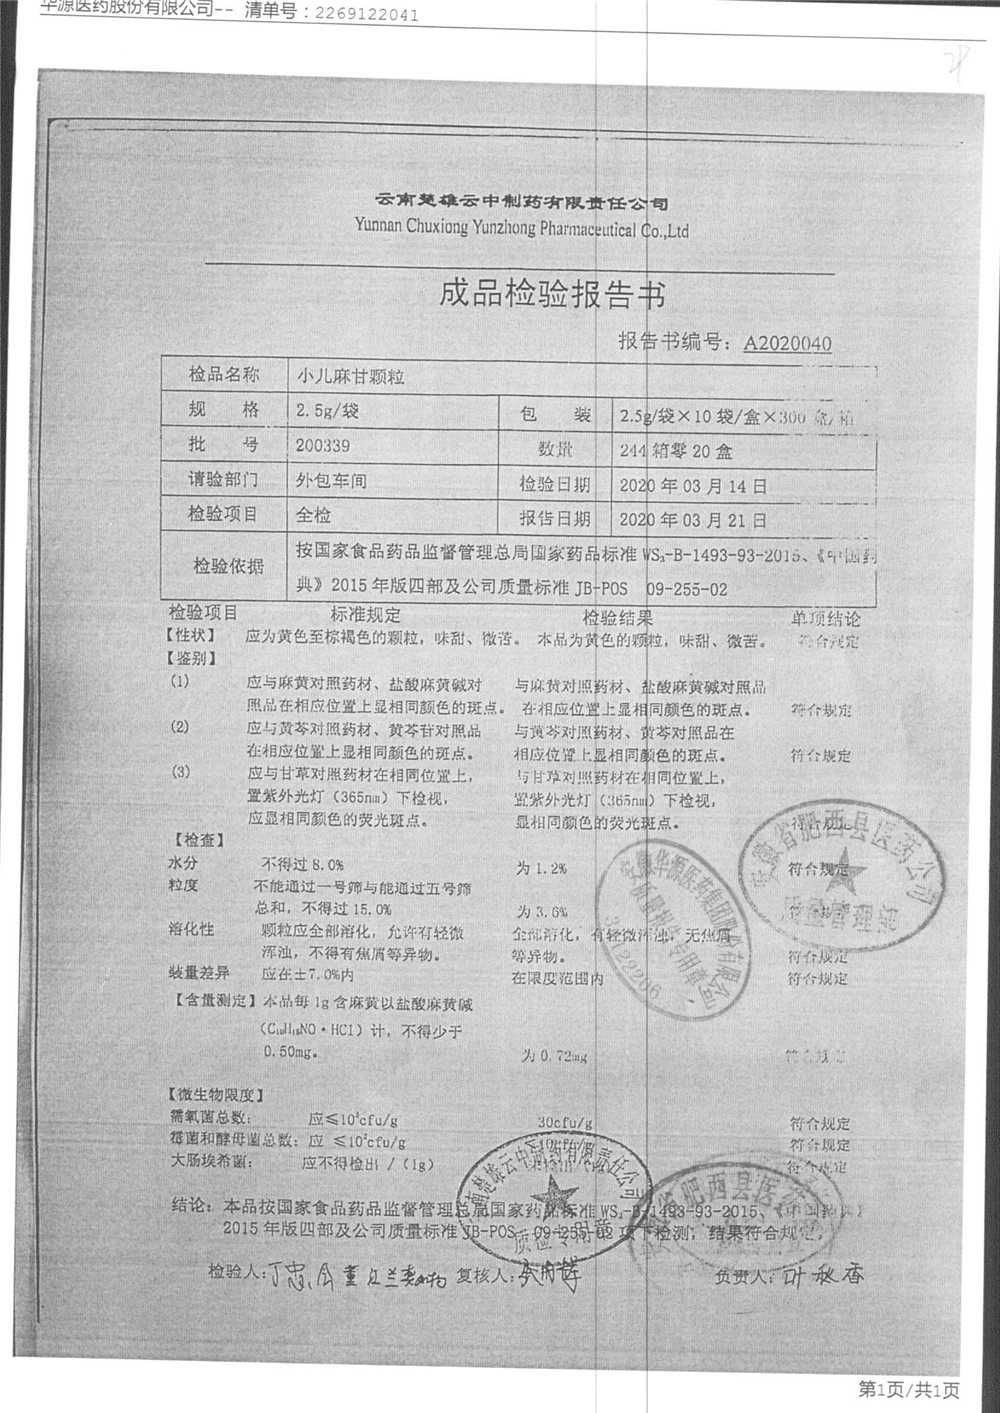 华源医药股份有限公司-- 清单号：2269122041
云南楚雄云中制药有限责任公司
Yunnan Chuxiong Yunzhong Pharmaceutical Co.,Ltd
成品检验报告书
报告书编号：A2020040
检品名称 小儿麻甘颗粒
规 格 2.5g/袋 包 装 2.5g/袋×10袋/盒×300盒/箱
批 号 200339 数量 244箱零20盒
请验部门 外包车间 检验日期 2020年03月14日
检验项目 全检 报告日期 2020年03月21日
检验依据 按国家食品药品监督管理总局国家药品标准WS₃-B-1493-93-2015、《中国药
典》2015年版四部及公司质量标准JB-POS 09-255-02
检验项目 标准规定 检验结果 单项结论
【性状】 应为黄色至棕褐色的颗粒，味甜、微苦。 本品为黄色的颗粒，味甜、微苦。 符合规定
【鉴别】
(1) 应与麻黄对照药材、盐酸麻黄碱对 与麻黄对照药材、盐酸麻黄碱对照品
照品在相应位置上显相同颜色的斑点。 在相应位置上显相同颜色的斑点。 符合规定
(2) 应与黄芩对照药材、黄芩苷对照品 与黄芩对照药材、黄芩对照品在
在相应位置上显相同颜色的斑点。 相应位置上显相同颜色的斑点。 符合规定
(3) 应与甘草对照药材在相同位置上， 与甘草对照药材在相同位置上，
置紫外光灯（365nm）下检视， 置紫外光灯（365nm）下检视，
应显相同颜色的荧光斑点。 显相同颜色的荧光斑点。 符合规定
【检查】
水分 不得过8.0% 为1.2% 符合规定
粒度 不能通过一号筛与能通过五号筛
总和，不得过15.0% 为3.6% 符合规定
溶化性 颗粒应全部溶化，允许有轻微 全部溶化，有轻微浑浊，无焦屑
浑浊，不得有焦屑等异物。 等异物。 符合规定
装量差异 应在±7.0%内 在限度范围内 符合规定
【含量测定】本品每1g含麻黄以盐酸麻黄碱
（C₁₀H₁₅NO·HCl）计，不得少于
0.50mg。 为0.72mg 符合规定
【微生物限度】
需氧菌总数： 应≤10³cfu/g 30cfu/g 符合规定
霉菌和酵母菌总数：应 ≤10²cfu/g 符合规定
大肠埃希菌： 应不得检出 /（1g） 符合规定
结论：本品按国家食品药品监督管理总局国家药品标准WS₃-B-1493-93-2015、《中国药典》
2015年版四部及公司质量标准JB-POS 09-255-02项下检测，结果符合规定。
检验人： 复核人： 负责人：叶秋香
安徽省肥西县医药公司
质量管理
安徽华源医药集团股份有限公司
质量报告专用章
云南楚雄云中制药有限责任公司
质检专用章
第1页/共1页